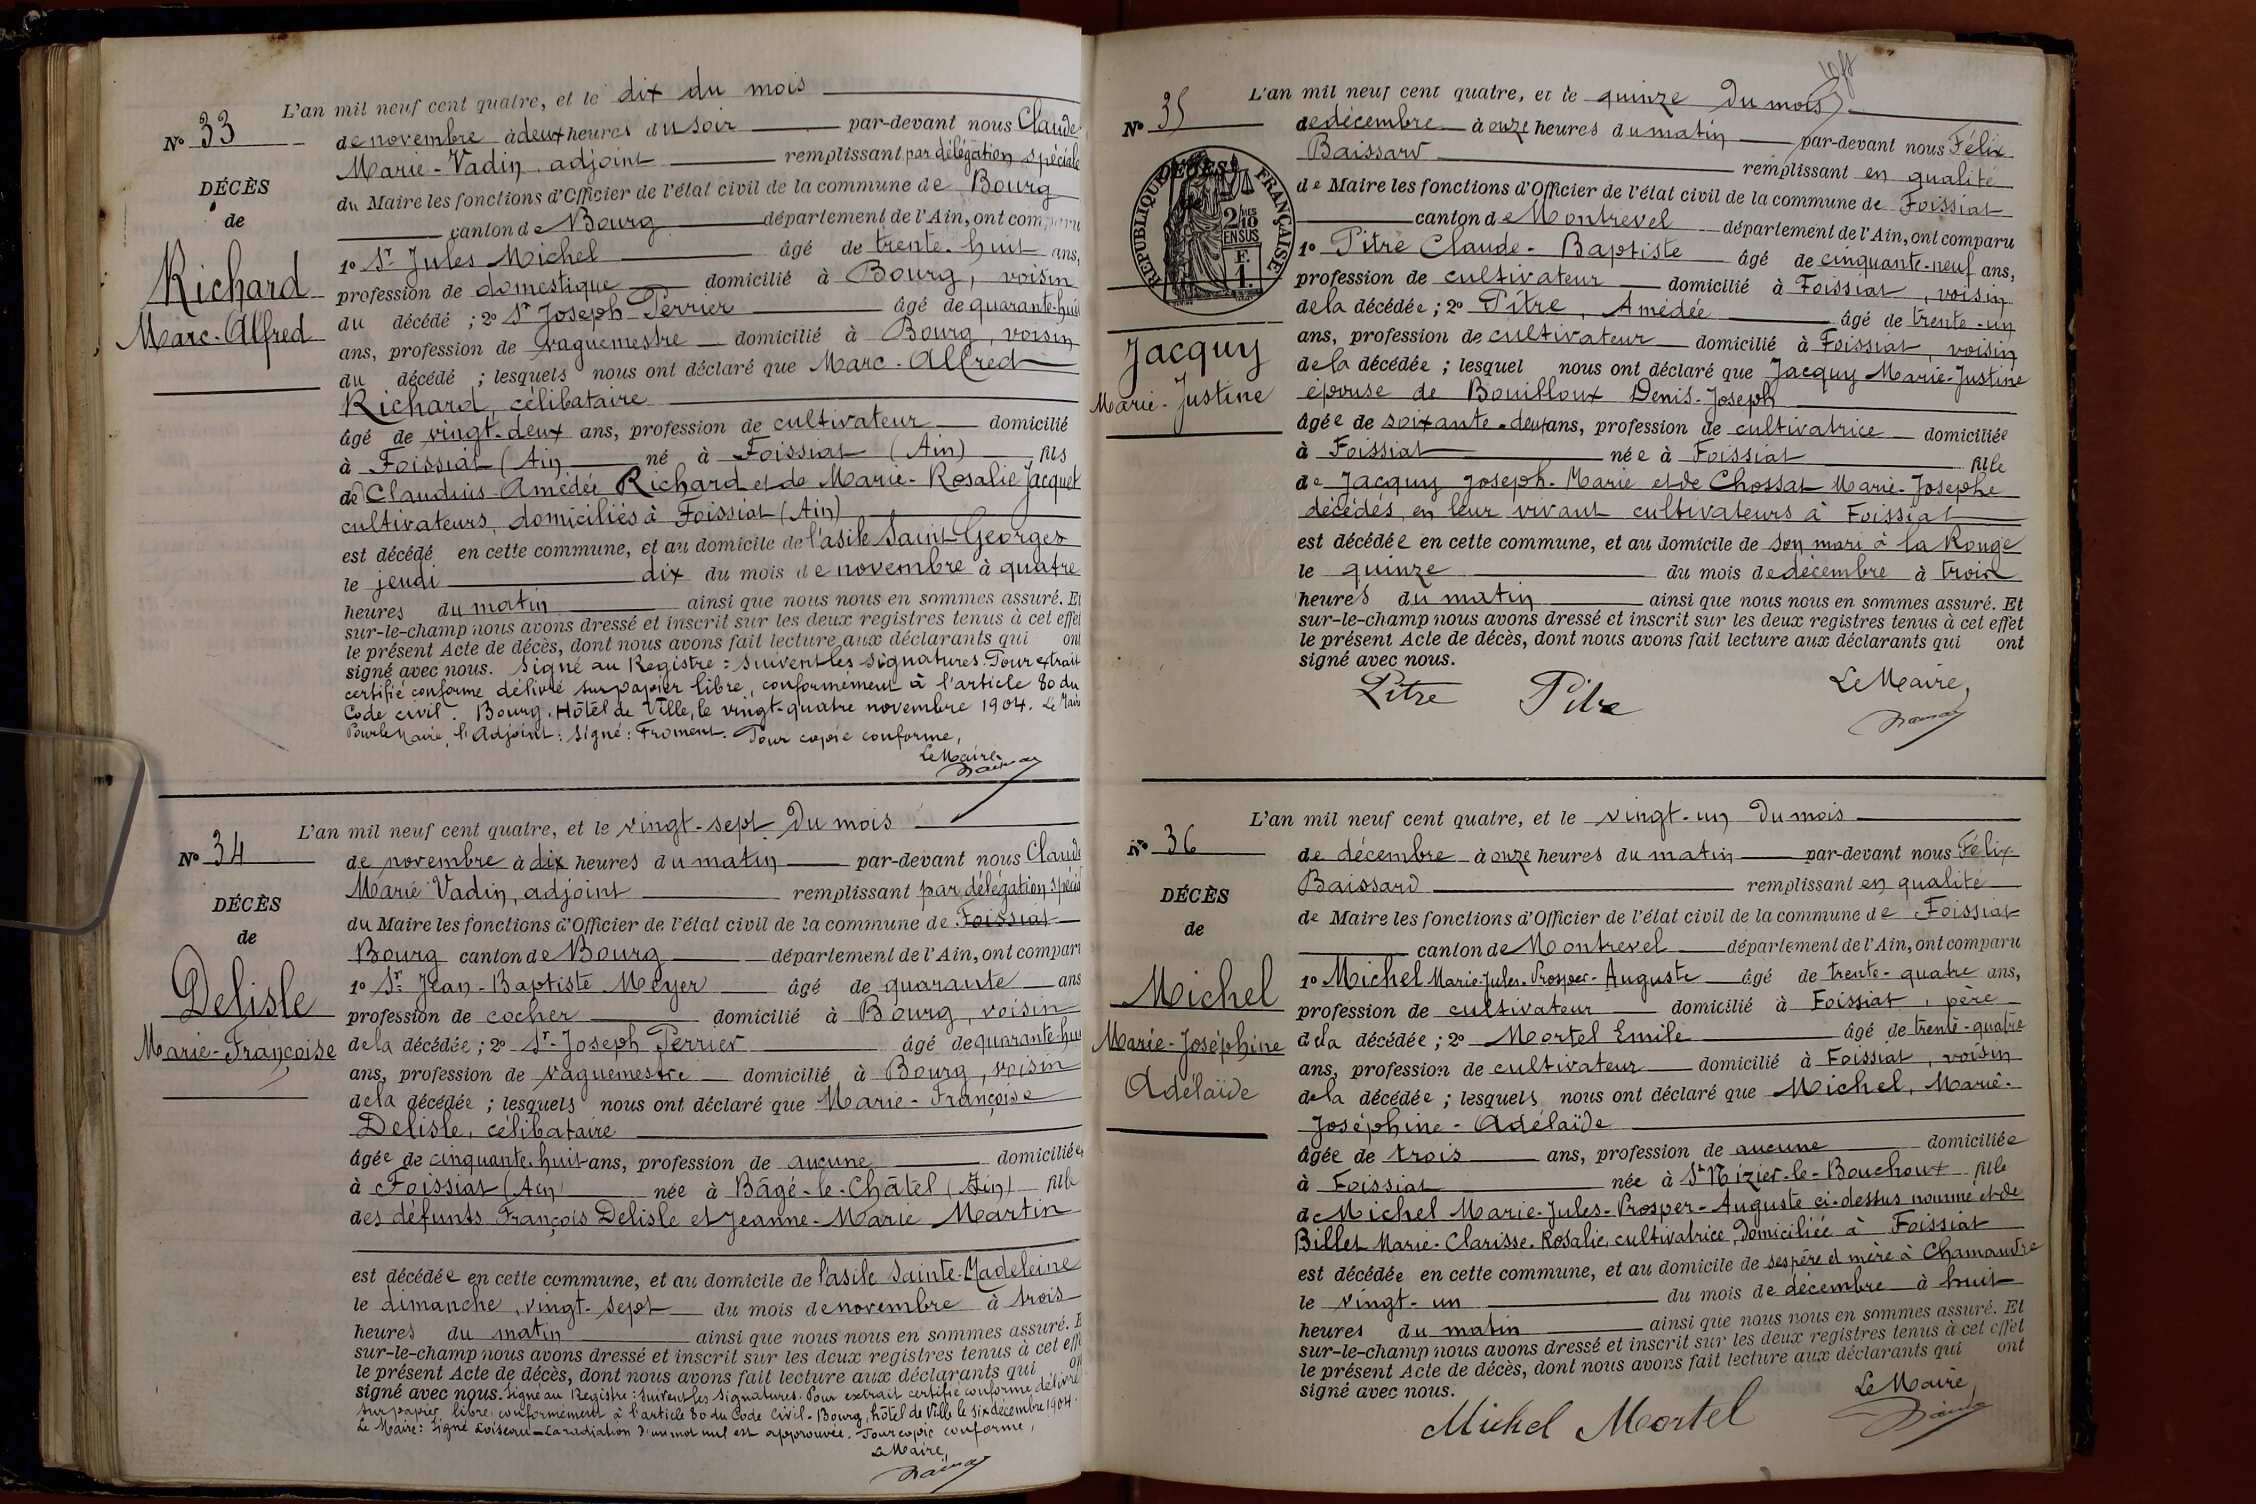 L'an mil neuf cent quatre, et le dix du mois
N° 33
de novembre à deux heures du soir par-devant nous Claude
Marie-Vadin adjoint remplissant par délégation spéciale
DÉCÈS
du Maire les fonctions d'Officier de l'état civil de la commune de Bourg
de
canton de Bourg département de l'Ain, ont comparu
1° Sr Jules Michel âgé de trente-huit ans,
Richard
profession de domestique domicilié à Bourg, voisin
du décédé ; 2° Sr Joseph Perrier âgé de quarante-huit
Marc-Alfred
ans, profession de vaguemestre domicilié à Bourg, voisin
du décédé ; lesquels nous ont déclaré que Marc-Alfred
Richard, célibataire
âgé de vingt-deux ans, profession de cultivateur domicilié
à Foissiat (Ain né à Foissiat (Ain) fils
de Claudius-Amédée Richard et de Marie-Rosalie Jacquet
cultivateurs, domiciliés à Foissiat (Ain)
est décédé en cette commune, et au domicile de l'asile Saint-Georges
le jeudi dix du mois de novembre à quatre
heures du matin ainsi que nous nous en sommes assuré. Et
sur-le-champ nous avons dressé et inscrit sur les deux registres tenus à cet effet
le présent Acte de décès, dont nous avons fait lecture aux déclarants qui ont
signé avec nous. Signé au Registre : suivent les signatures. Pour extrait
certifié conforme délivré sur papier libre, conformément à l'article 80 du
Code civil. Bourg, Hôtel de Ville, le vingt-quatre novembre 1904. Le Maire
Pour le Maire, l'Adjoint : signé : Froment. Pour copie conforme,
Le Maire,
L'an mil neuf cent quatre, et le vingt-sept du mois
N° 34
de novembre à dix heures du matin par-devant nous Claude
Marie Vadin, adjoint remplissant par délégation spécial
DÉCÈS
du Maire les fonctions d'Officier de l'état civil de la commune de Foissiat
de
Bourg canton de Bourg département de l'Ain, ont comparu
1° Sr Jean-Baptiste Meyer âgé de quarante ans
Delisle
profession de cocher domicilié à Bourg, voisin
Marie-Françoise
de la décédée ; 2° Sr Joseph Perrier âgé de quarante-huit
ans, profession de vaguemestre domicilié à Bourg, voisin
de la décédée ; lesquels nous ont déclaré que Marie-Françoise
Delisle, célibataire
âgée de cinquante-huit ans, profession de aucune domiciliée
à Foissiat (Ain) née à Bâgé-le-Châtel (Ain) fille
des défunts François Delisle et Jeanne-Marie Martin
est décédée en cette commune, et au domicile de l'asile Sainte-Madeleine
le dimanche, vingt-sept du mois de novembre à trois
heures du matin ainsi que nous nous en sommes assuré. E
sur-le-champ nous avons dressé et inscrit sur les deux registres tenus à cet effe
le présent Acte de décès, dont nous avons fait lecture aux déclarants qui on
signé avec nous. Signé au Registre : suivent les signatures. Pour extrait certifié conforme délivré
sur papier libre, conformément à l'article 80 du Code Civil. Bourg, hôtel de Ville le six décembre 1904.
Le Maire : Signé Loiseau - La radiation d'un mot nul est approuvée. Pour copie conforme,
Le Maire,
L'an mil neuf cent quatre, et le quinze du mois
N° 35
de décembre à onze heures du matin par-devant nous Félix
Baissard remplissant en qualité
DÉCÈS
RÉPUBLIQUE FRANÇAISE
2/10 EN SUS
F. 1.
de Maire les fonctions d'Officier de l'état civil de la commune de Foissiat
canton de Montrevel département de l'Ain, ont comparu
1° Pitre Claude-Baptiste âgé de cinquante-neuf ans,
profession de cultivateur domicilié à Foissiat, voisin
de la décédée ; 2° Pitre, Amédée âgé de trente-un
Jacquy
ans, profession de cultivateur domicilié à Foissiat, voisin
de la décédée ; lesquel nous ont déclaré que Jacquy Marie-Justine
Marie-Justine
épouse de Bouilloux Denis-Joseph
âgée de soixante-deux ans, profession de cultivatrice domiciliée
à Foissiat née à Foissiat fille
de Jacquy Joseph-Marie et de Chossat Marie-Josephe
décédés, en leur vivant cultivateurs à Foissiat
est décédée en cette commune, et au domicile de son mari à la Rouge
le quinze du mois de décembre à trois
heures du matin ainsi que nous nous en sommes assuré. Et
sur-le-champ nous avons dressé et inscrit sur les deux registres tenus à cet effet
le présent Acte de décès, dont nous avons fait lecture aux déclarants qui ont
signé avec nous.
Le Maire,
Pitre Pitre
L'an mil neuf cent quatre, et le vingt-un du mois
N° 36
de décembre à onze heures du matin par-devant nous Félix
Baissard remplissant en qualité
DÉCÈS
de Maire les fonctions d'Officier de l'état civil de la commune de Foissiat
de
canton de Montrevel département de l'Ain, ont comparu
Michel
1° Michel Marie-Jules-Prosper-Auguste âgé de trente-quatre ans,
profession de cultivateur domicilié à Foissiat, père
Marie-Joséphine
de la décédée ; 2° Mortel Emile âgé de trente-quatre
ans, profession de cultivateur domicilié à Foissiat, voisin
Adélaïde
de la décédée ; lesquels nous ont déclaré que Michel, Marie-
Joséphine-Adélaïde
âgée de trois ans, profession de aucune domiciliée
à Foissiat née à St Nizier-le-Bouchoux fille
de Michel Marie-Jules-Prosper-Auguste ci-dessus nommé et de
Billet Marie-Clarisse-Rosalie, cultivatrice, domiciliée à Foissiat
est décédée en cette commune, et au domicile de ses père et mère à Chamandre
le vingt-un du mois de décembre à huit
heures du matin ainsi que nous nous en sommes assuré. Et
sur-le-champ nous avons dressé et inscrit sur les deux registres tenus à cet effet
le présent Acte de décès, dont nous avons fait lecture aux déclarants qui ont
signé avec nous.
Le Maire,
Michel Mortel